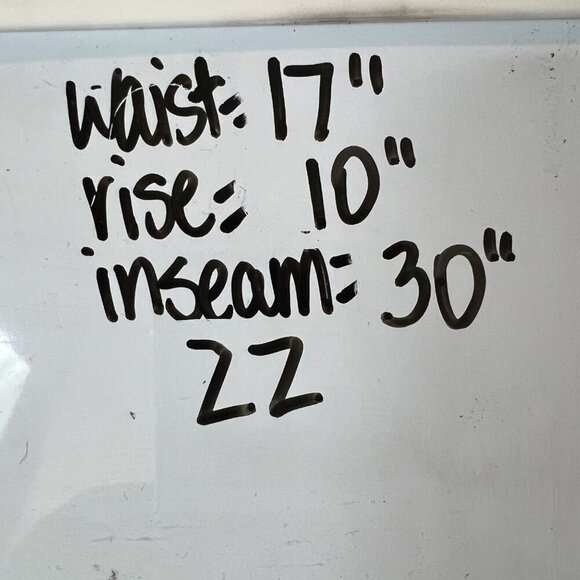 waist= 17"
rise= 10"
inseam= 30"
22